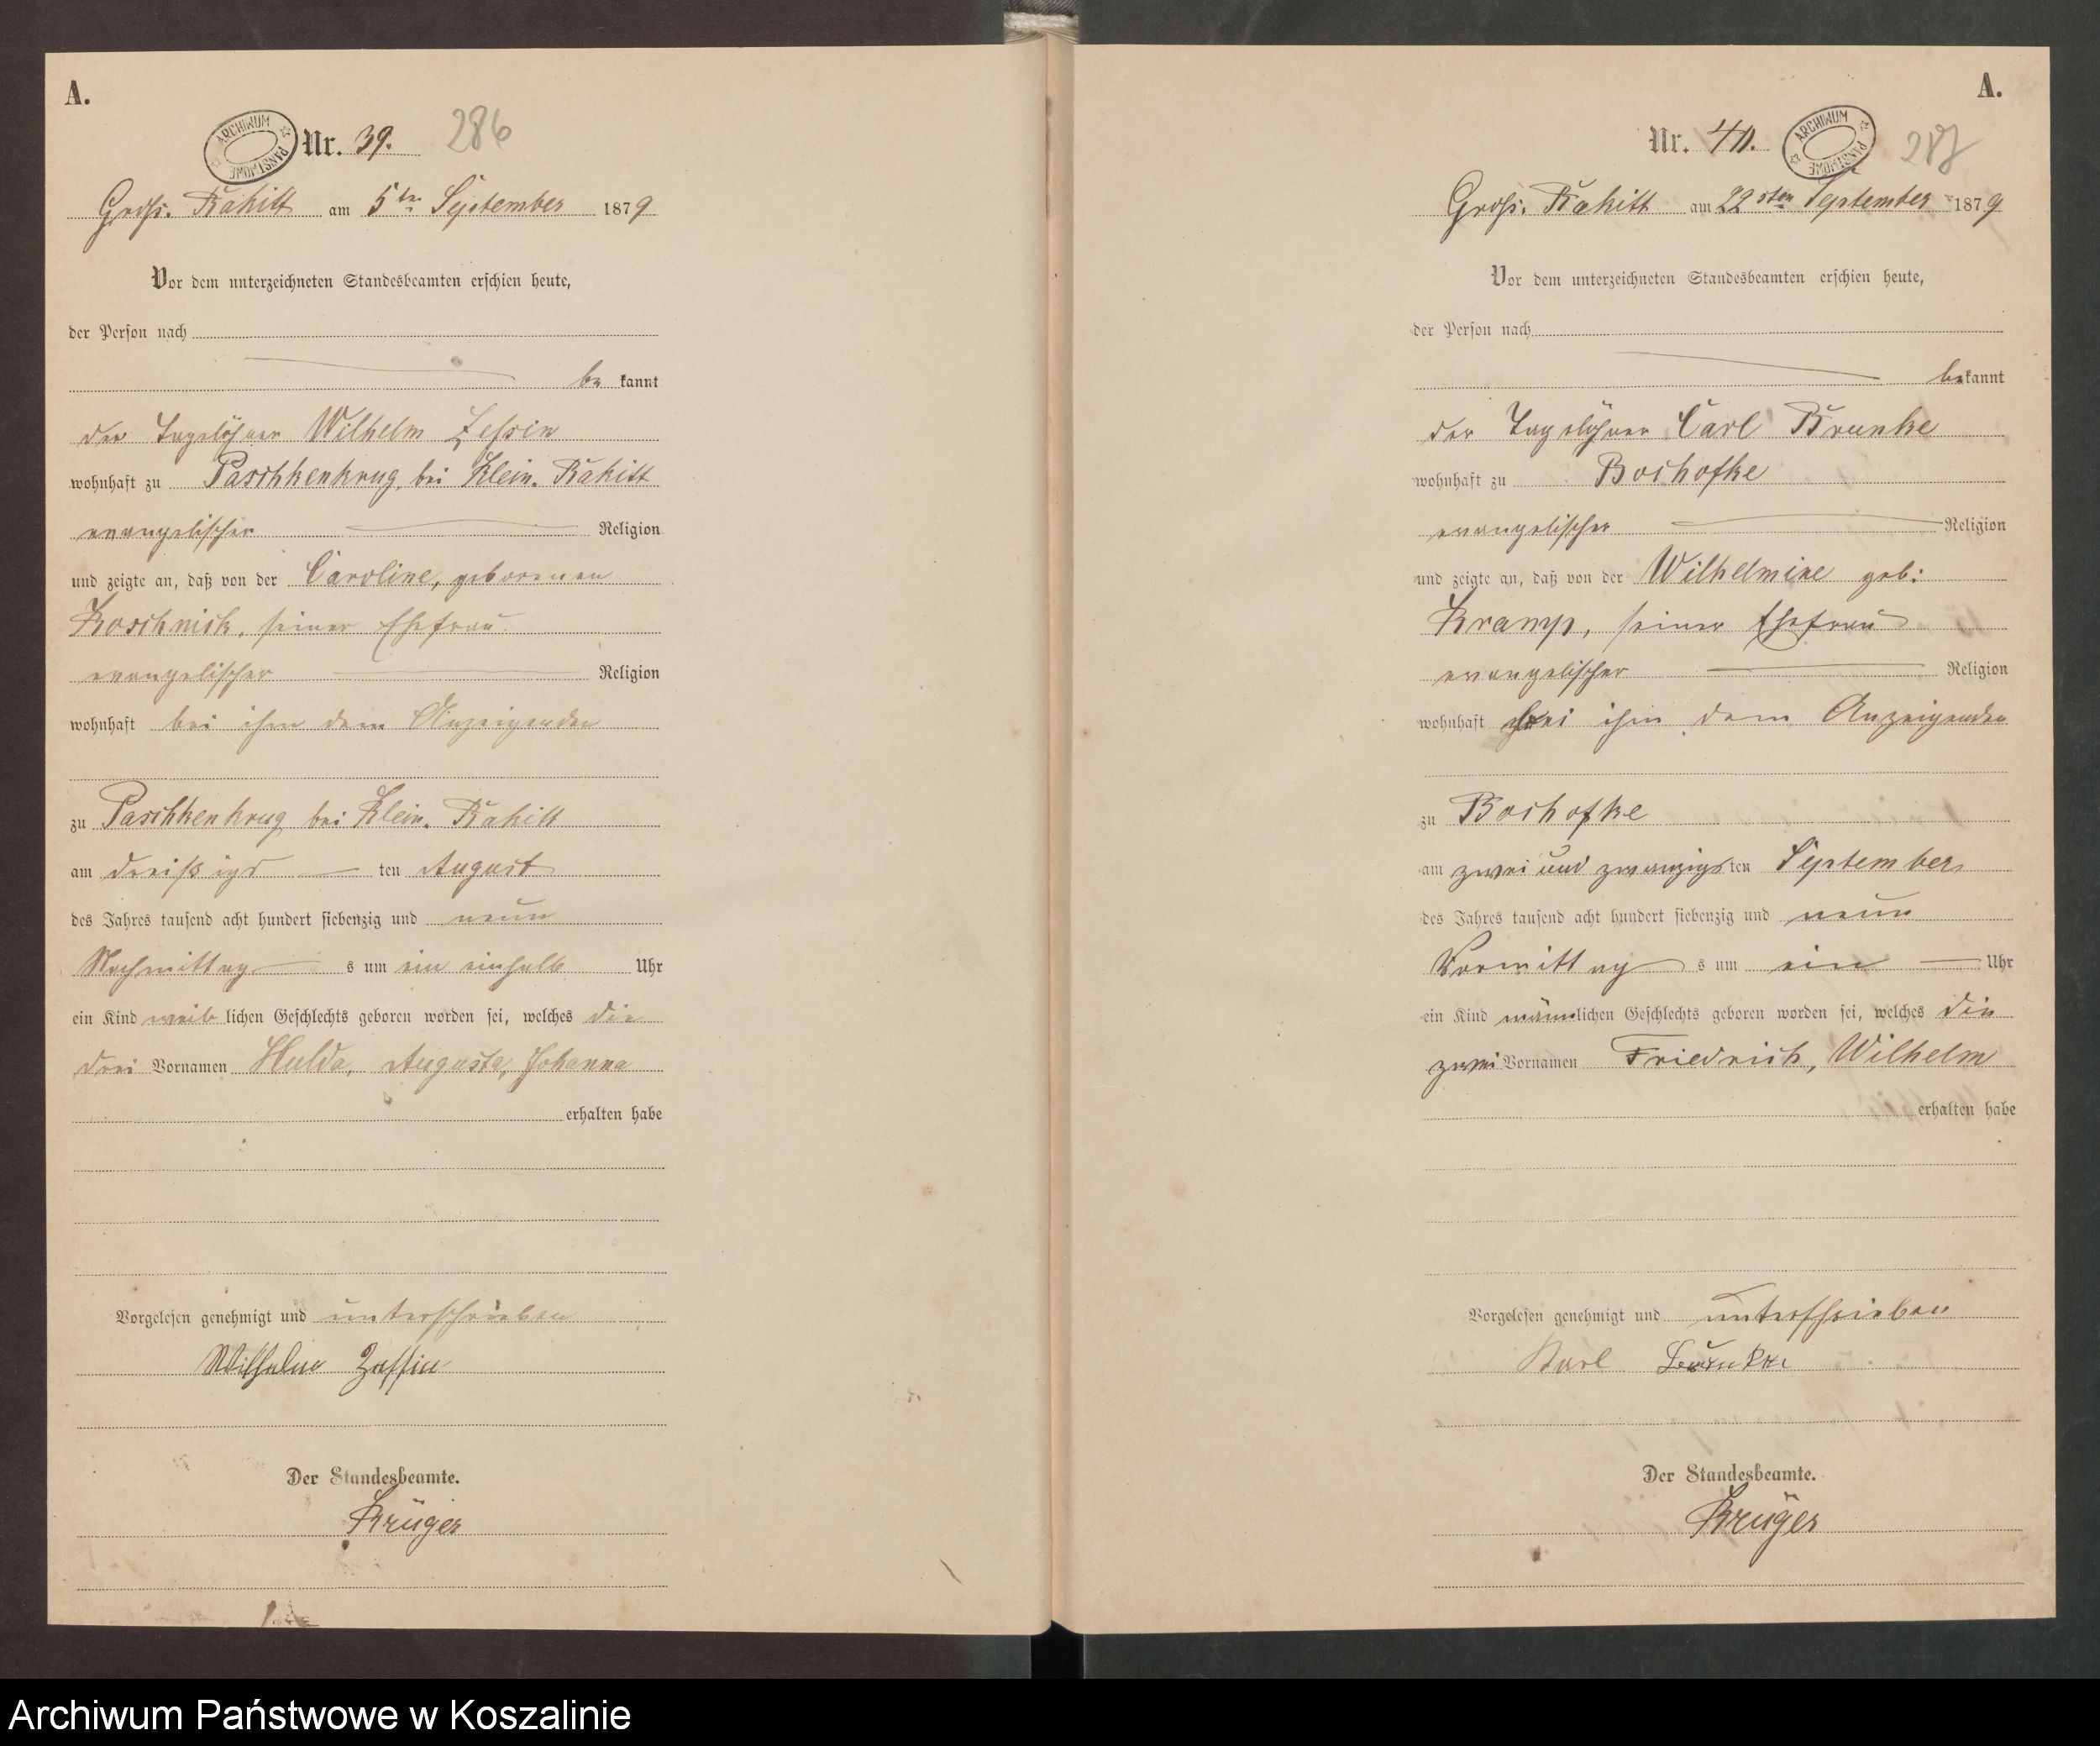 A.
ARCHIWUM PAŃSTWOWE
Nr. 39.
286
Groß. Rakitt am 5ten September 1879
Vor dem unterzeichneten Standesbeamten erschien heute,
der Person nach
be kannt
der Tagelöhner Wilhelm Zessin
wohnhaft zu Paschkenkrug, bei Klein. Rakitt
evangelischer Religion
und zeigte an, daß von der Caroline, geborenen
Koschnick, seiner Ehefrau
evangelischer Religion
wohnhaft bei ihm dem Anzeigenden
zu Paschkenkrug bei Klein. Rakitt
am dreißigs ten August
des Jahres tausend acht hundert siebenzig und neun
Nachmittag s um ein einhalb Uhr
ein Kind weib lichen Geschlechts geboren worden sei, welches die
drei Vornamen Hulda, Augusta, Johanna
erhalten habe
Vorgelesen genehmigt und unterschrieben
Wilhelm Zessin
Der Standesbeamte.
Krüger
A.
Nr. 40.
ARCHIWUM PAŃSTWOWE
287
Groß. Rakitt am 22sten September 1879
Vor dem unterzeichneten Standesbeamten erschien heute,
der Person nach
bekannt
der Tagelöhner Carl Brunke
wohnhaft zu Bochofke
evangelischer Religion
und zeigte an, daß von der Wilhelmine geb:
Kramp, seiner Ehefrau
evangelischer Religion
wohnhaft bei ihm dem Anzeigenden
zu Bochofke
am zwei und zwanzigsten September
des Jahres tausend acht hundert siebenzig und neun
Vormittag s um ein Uhr
ein Kind männlichen Geschlechts geboren worden sei, welches die
zwei Vornamen Friedrich, Wilhelm
erhalten habe
Vorgelesen genehmigt und unterschrieben
Karl Brunke
Der Standesbeamte.
Krüger
Archiwum Państwowe w Koszalinie